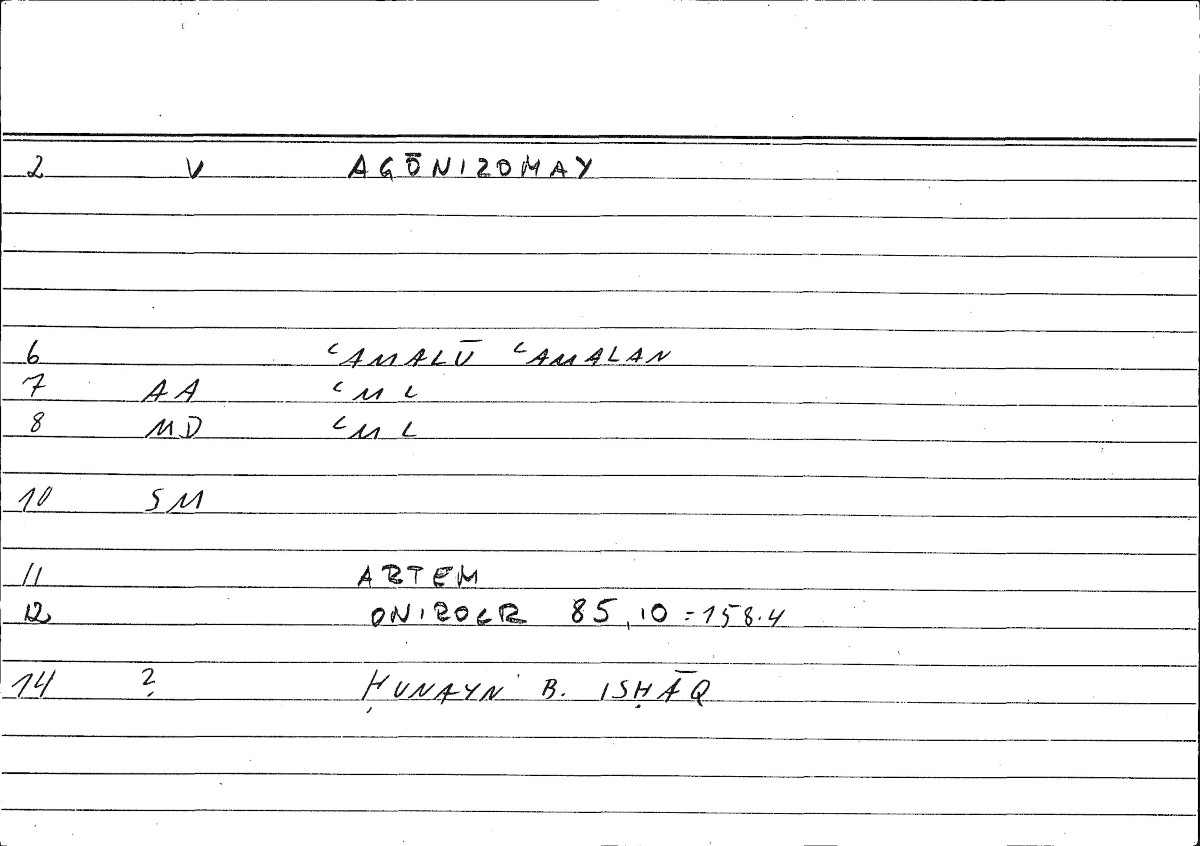 2 V AGŌNIZOMAY
6 ʿAMALŪ ʿAMALAN
7 AA ʿML
8 MD ʿML
10 SM
11 ARTEM
12 ONIROCR 85,10 = 158.4
14 ? ḤUNAYN B. ISḤĀQ